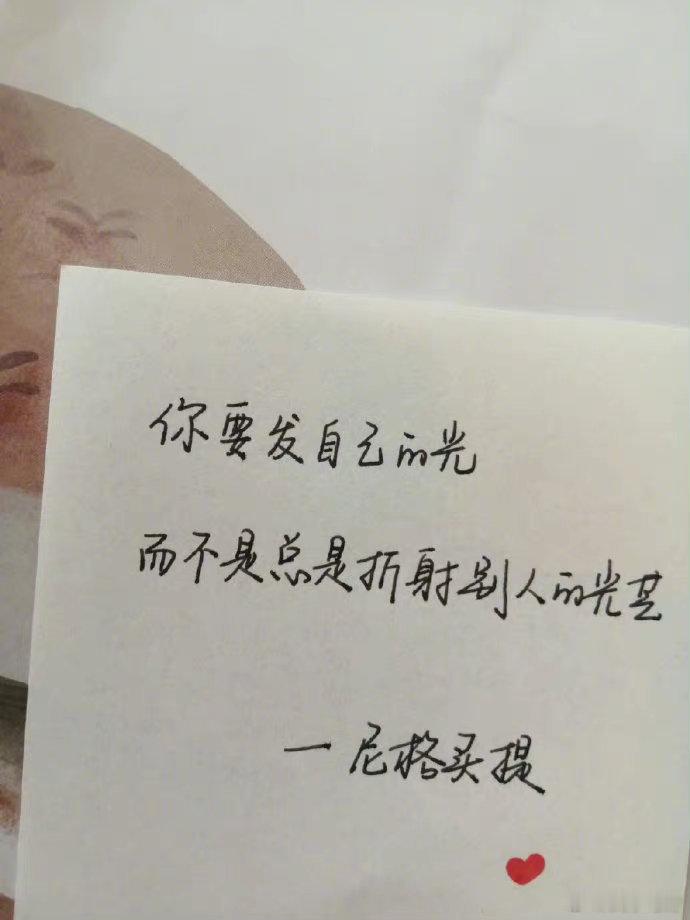 你要发自己的光
而不是总是折射别人的光芒
一尼格买提